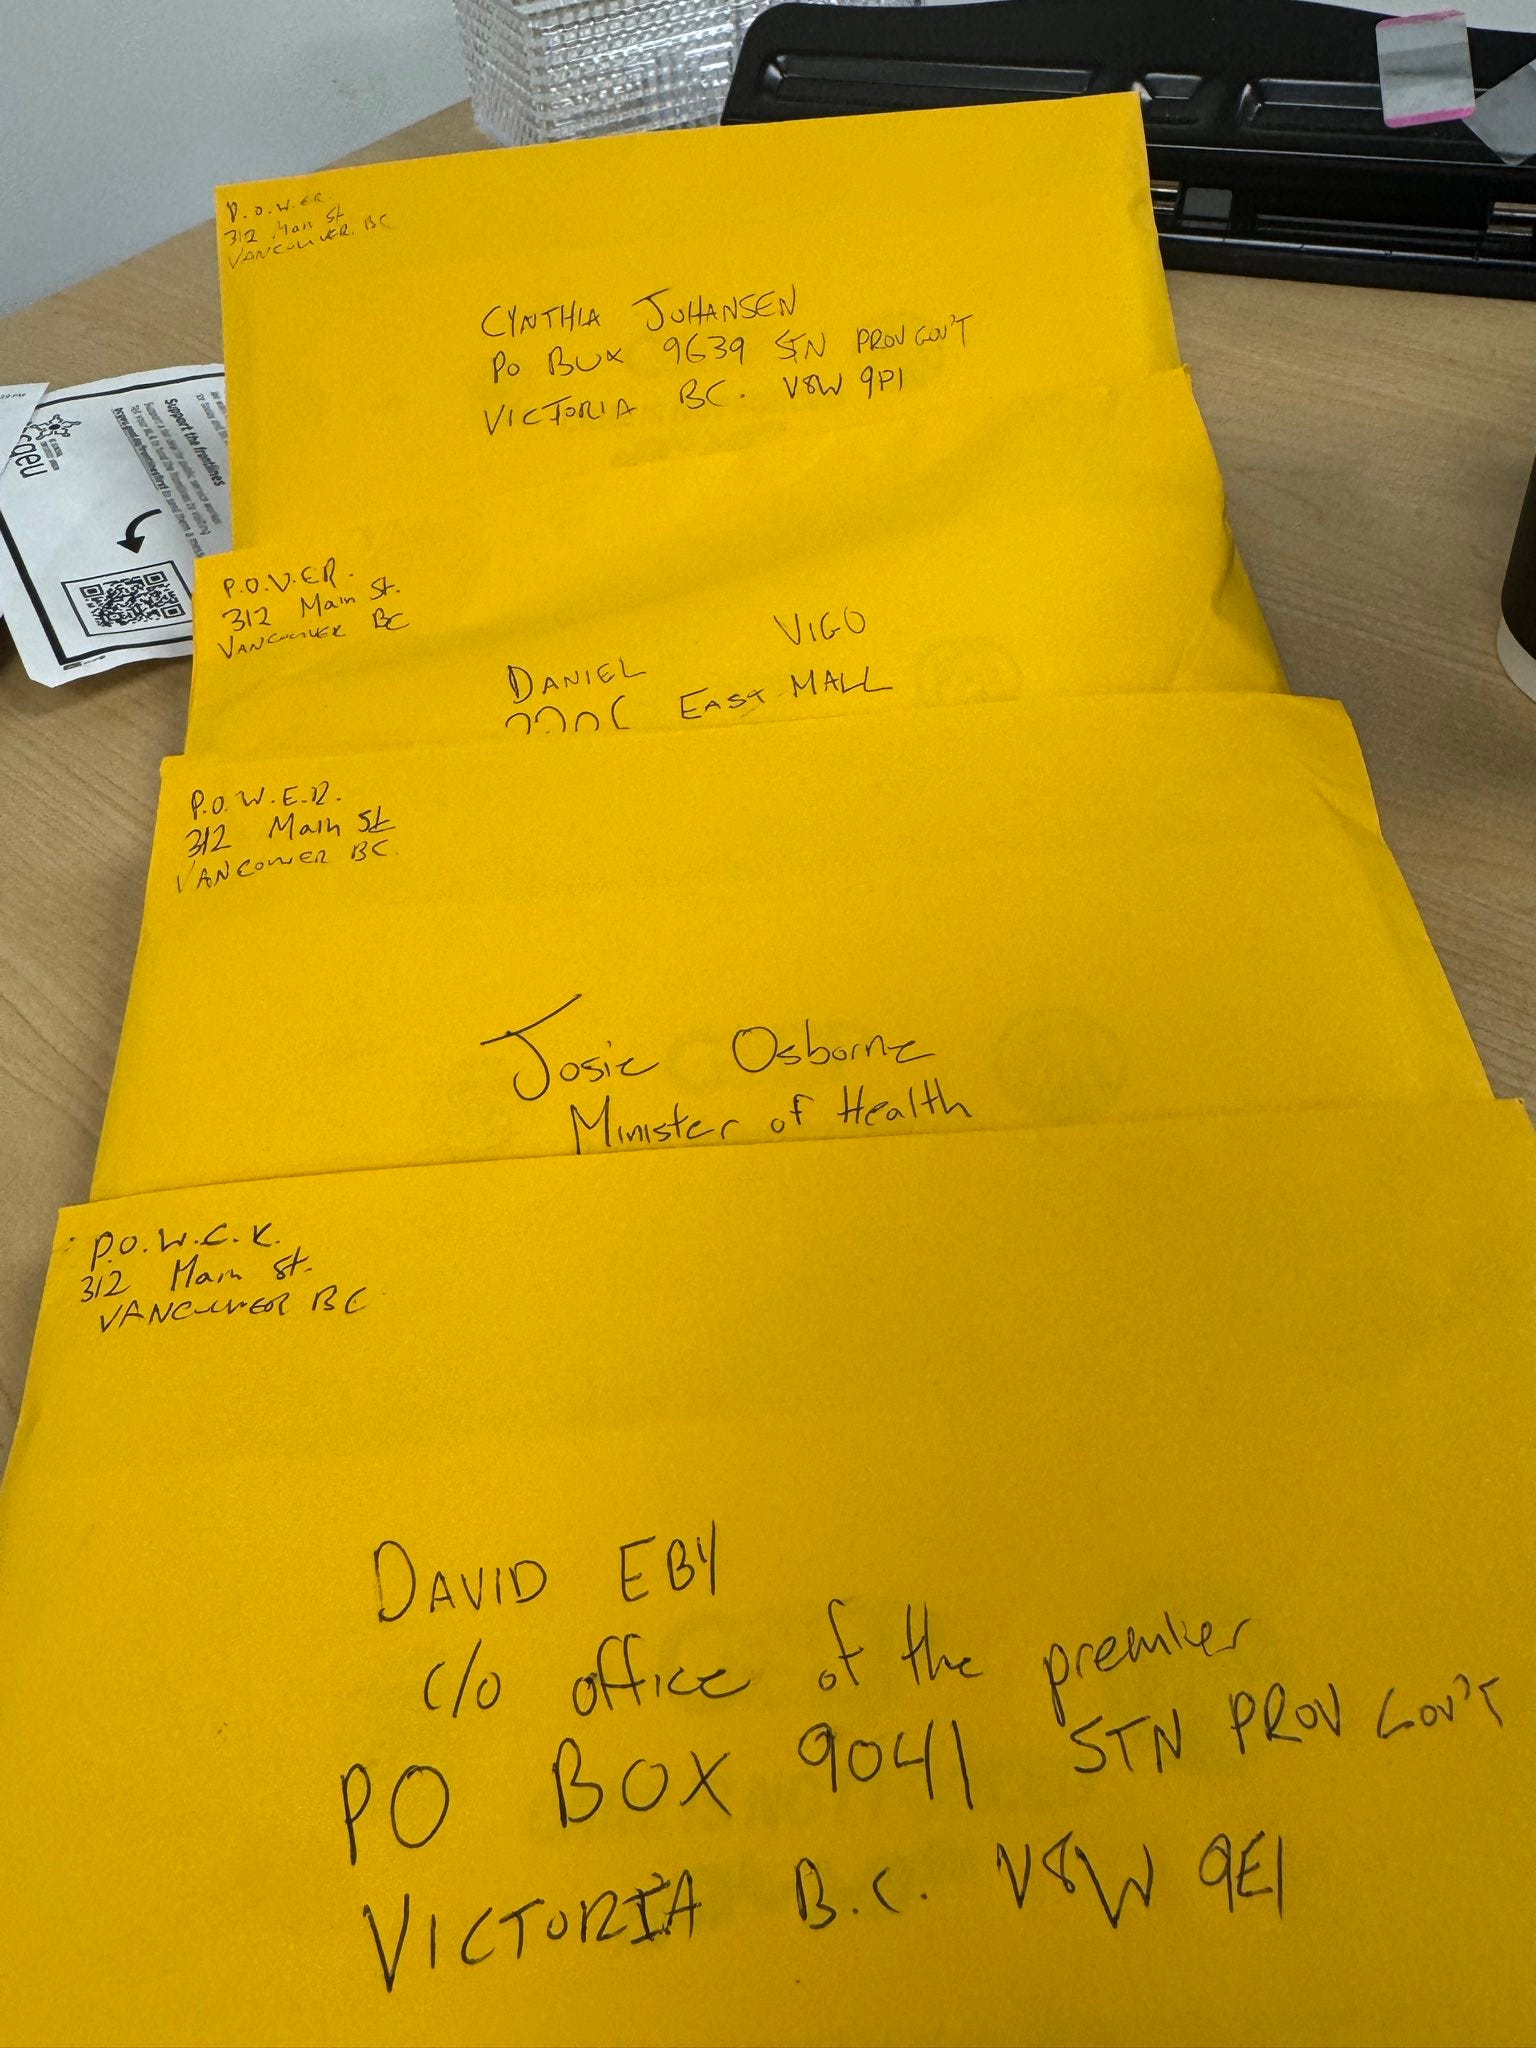 P.O.W.ER.
312 Main St
VANCOUVER. BC
CYNTHIA JOHANSEN
PO BOX 9639 STN PROV GOV'T
VICTORIA BC. V8W 9P1
Support the frontlines
P.O.W.ER.
312 Main St.
VANCOUVER BC
DANIEL VIGO
EAST MALL
P.O.W.E.R.
312 Main St
VANCOUVER BC.
Josie Osborne
Minister of Health
P.O.W.E.R.
312 Main St.
VANCOUVER BC
DAVID EBY
c/o office of the premier
PO BOX 9041 STN PROV GOV'T
VICTORIA B.C. V8W 9E1